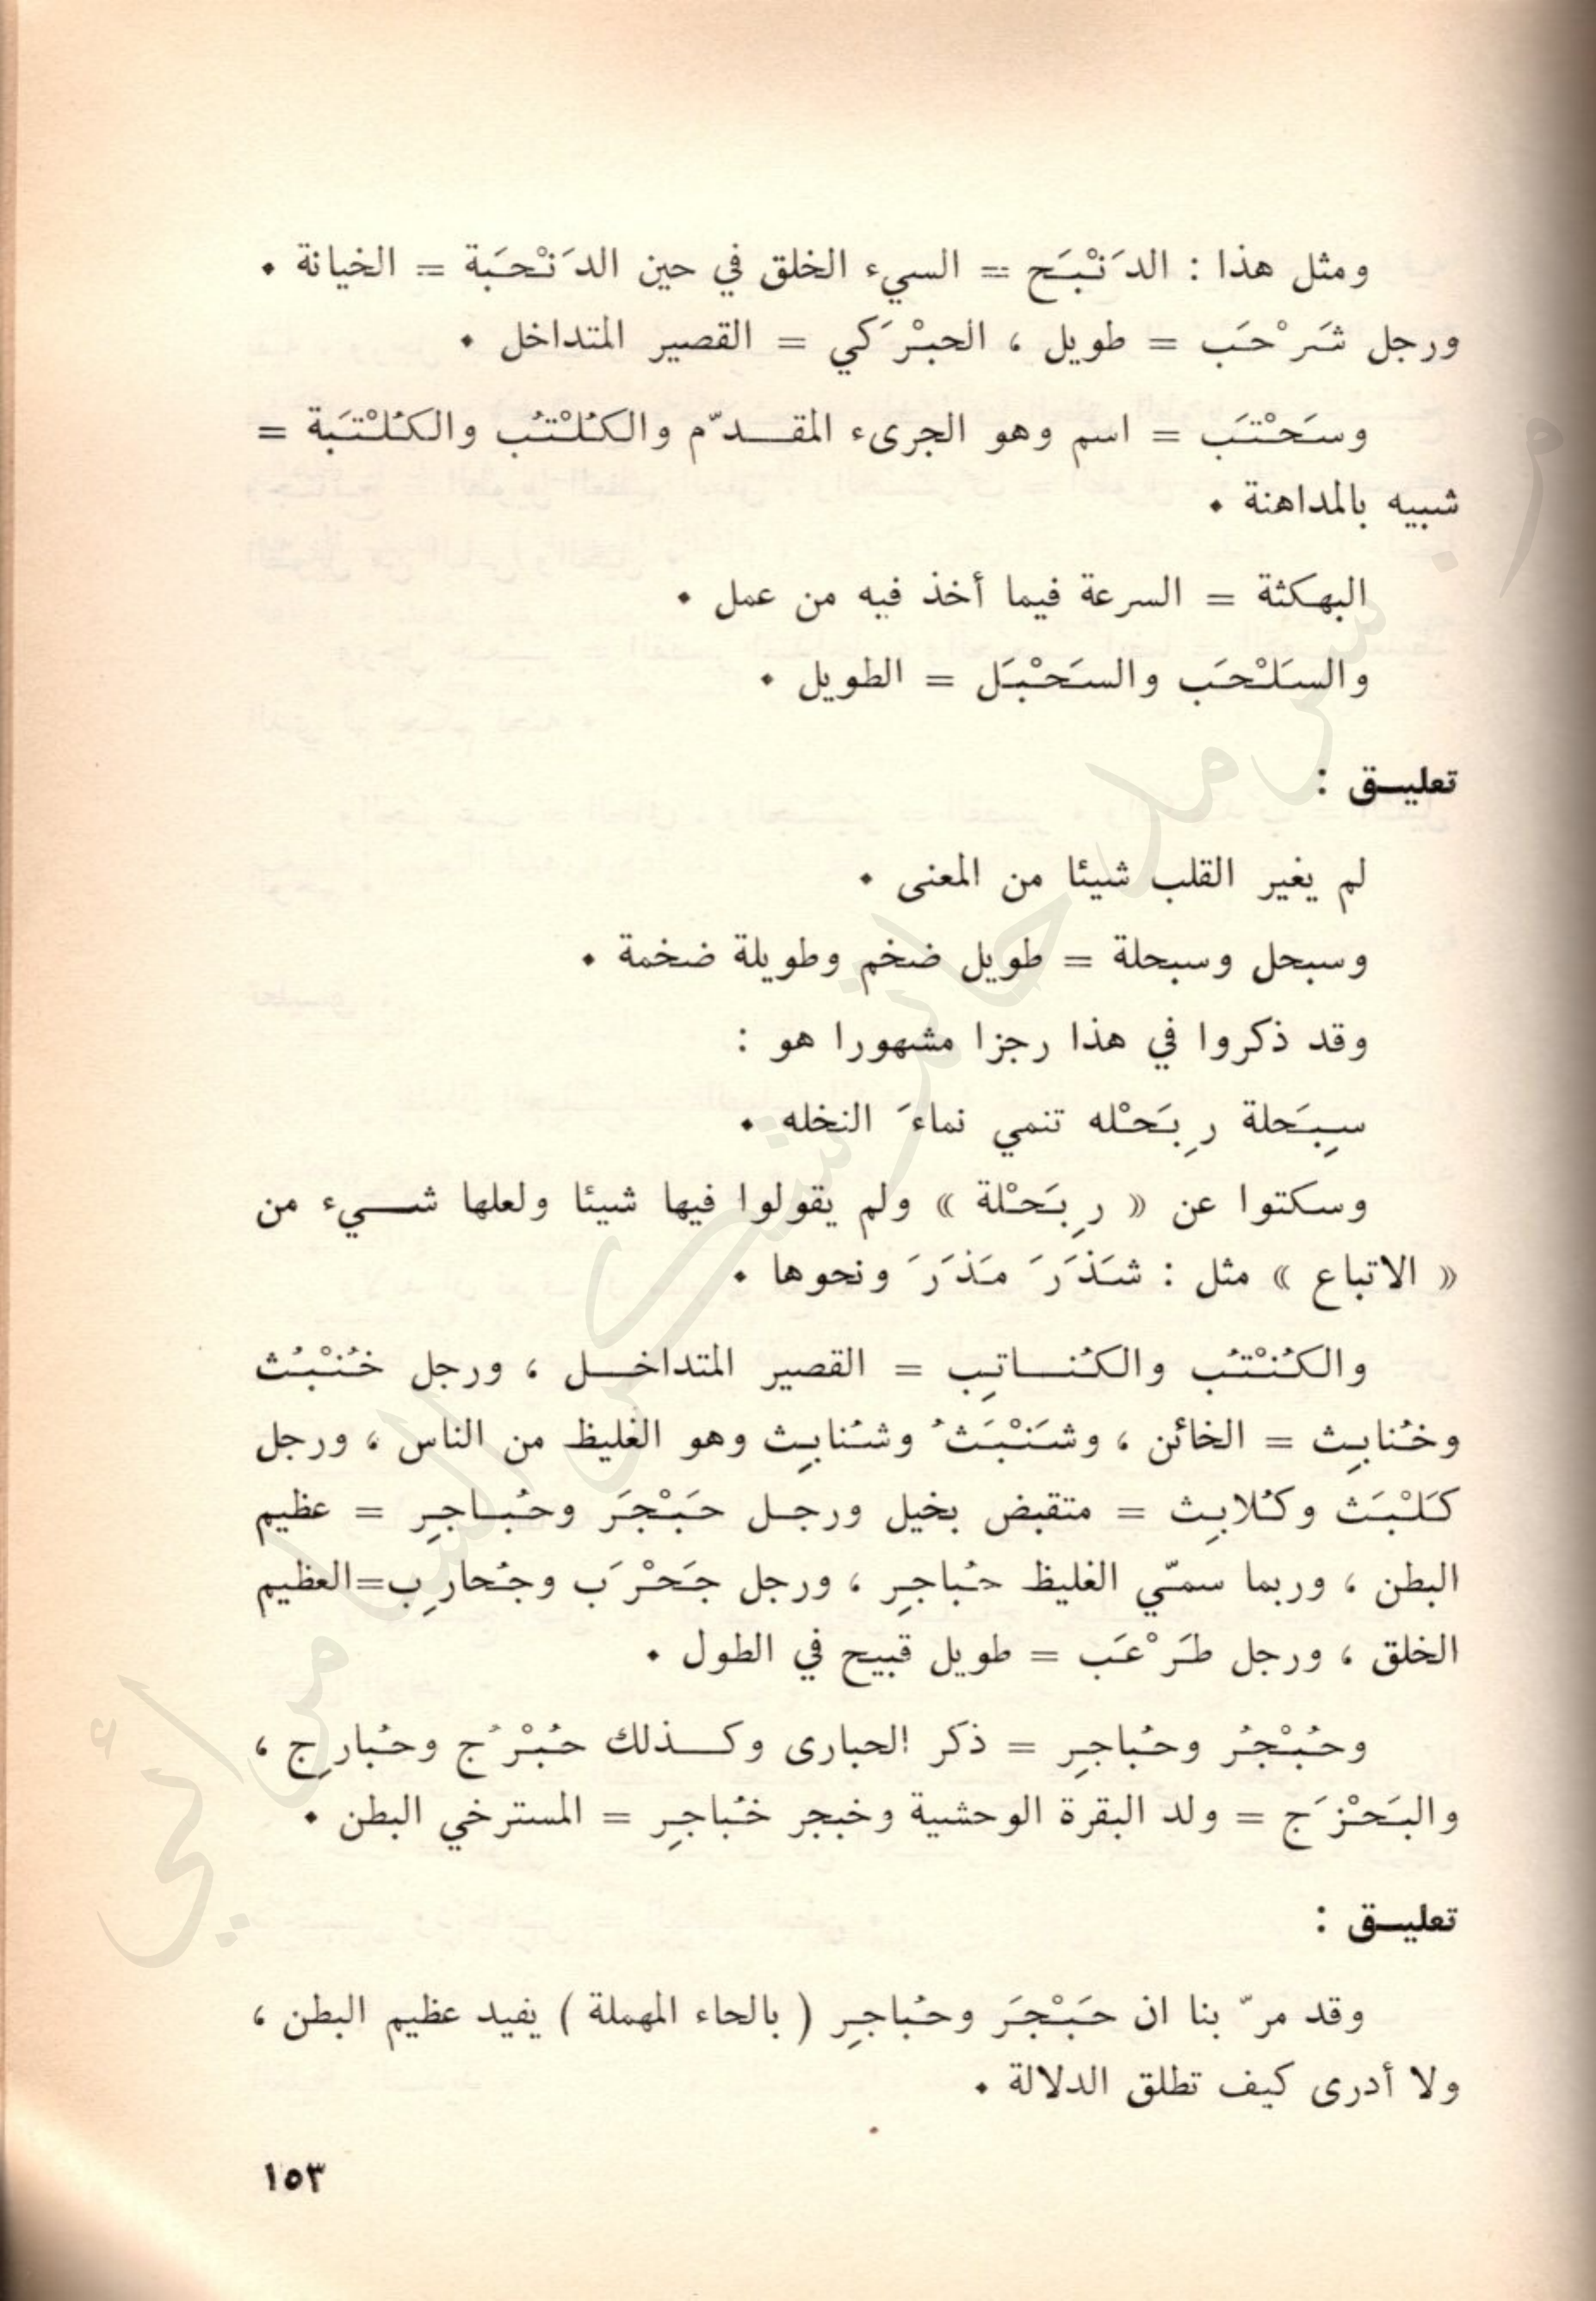 ومثل هذا : الدَنْبَح = السيء الخلق في حين الدَنْحَبة = الخيانة .
ورجل شَرْحَب = طويل ، الحبْرَكي = القصير المتداخل .
وسَحْتَب = اسم وهو الجرىء المقدّم والكُلْتُب والكُلْتَبة =
شبيه بالمداهنة .
البهكثة = السرعة فيما أخذ فيه من عمل .
والسَلْحَب والسَحْبَل = الطويل .
تعليق :
لم يغير القلب شيئا من المعنى .
وسبحل وسبحلة = طويل ضخم وطويلة ضخمة .
وقد ذكروا في هذا رجزا مشهورا هو :
سِبَحلة رِبَحْله تنمي نماءَ النخله .
وسكتوا عن « رِبَحْلة » ولم يقولوا فيها شيئا ولعلها شيء من
« الاتباع » مثل : شَذَرَ مَذَرَ ونحوها .
والكُنْتُب والكُناتِب = القصير المتداخل ، ورجل خُنْبُث
وخُنابِث = الخائن ، وشَنْبَثُ وشُنابِث وهو الغليظ من الناس ، ورجل
كَلْبَث وكُلابِث = متقبض بخيل ورجل حَبْجَر وحُباجِر = عظيم
البطن ، وربما سمّي الغليظ حُباجِر ، ورجل جَحْرَب وجُحارِب=العظيم
الخلق ، ورجل طَرْعَب = طويل قبيح في الطول .
وحُبْجُر وحُباجِر = ذكر الحبارى وكذلك حُبْرُج وحُبارِج ،
والبَحْزَج = ولد البقرة الوحشية وخبجر خُباجِر = المسترخي البطن .
تعليق :
وقد مرّ بنا ان حَبْجَر وحُباجِر ( بالحاء المهملة ) يفيد عظيم البطن ،
ولا أدرى كيف تطلق الدلالة .
١٥٣